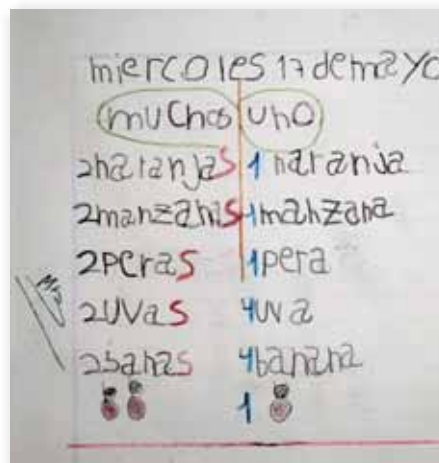 miercoles 17 de mayo
muchos uno
2naranjas 1 naranja
2manzanas 1manzana
2peras 1pera
2uvas 4uva
2banas 4banana
1